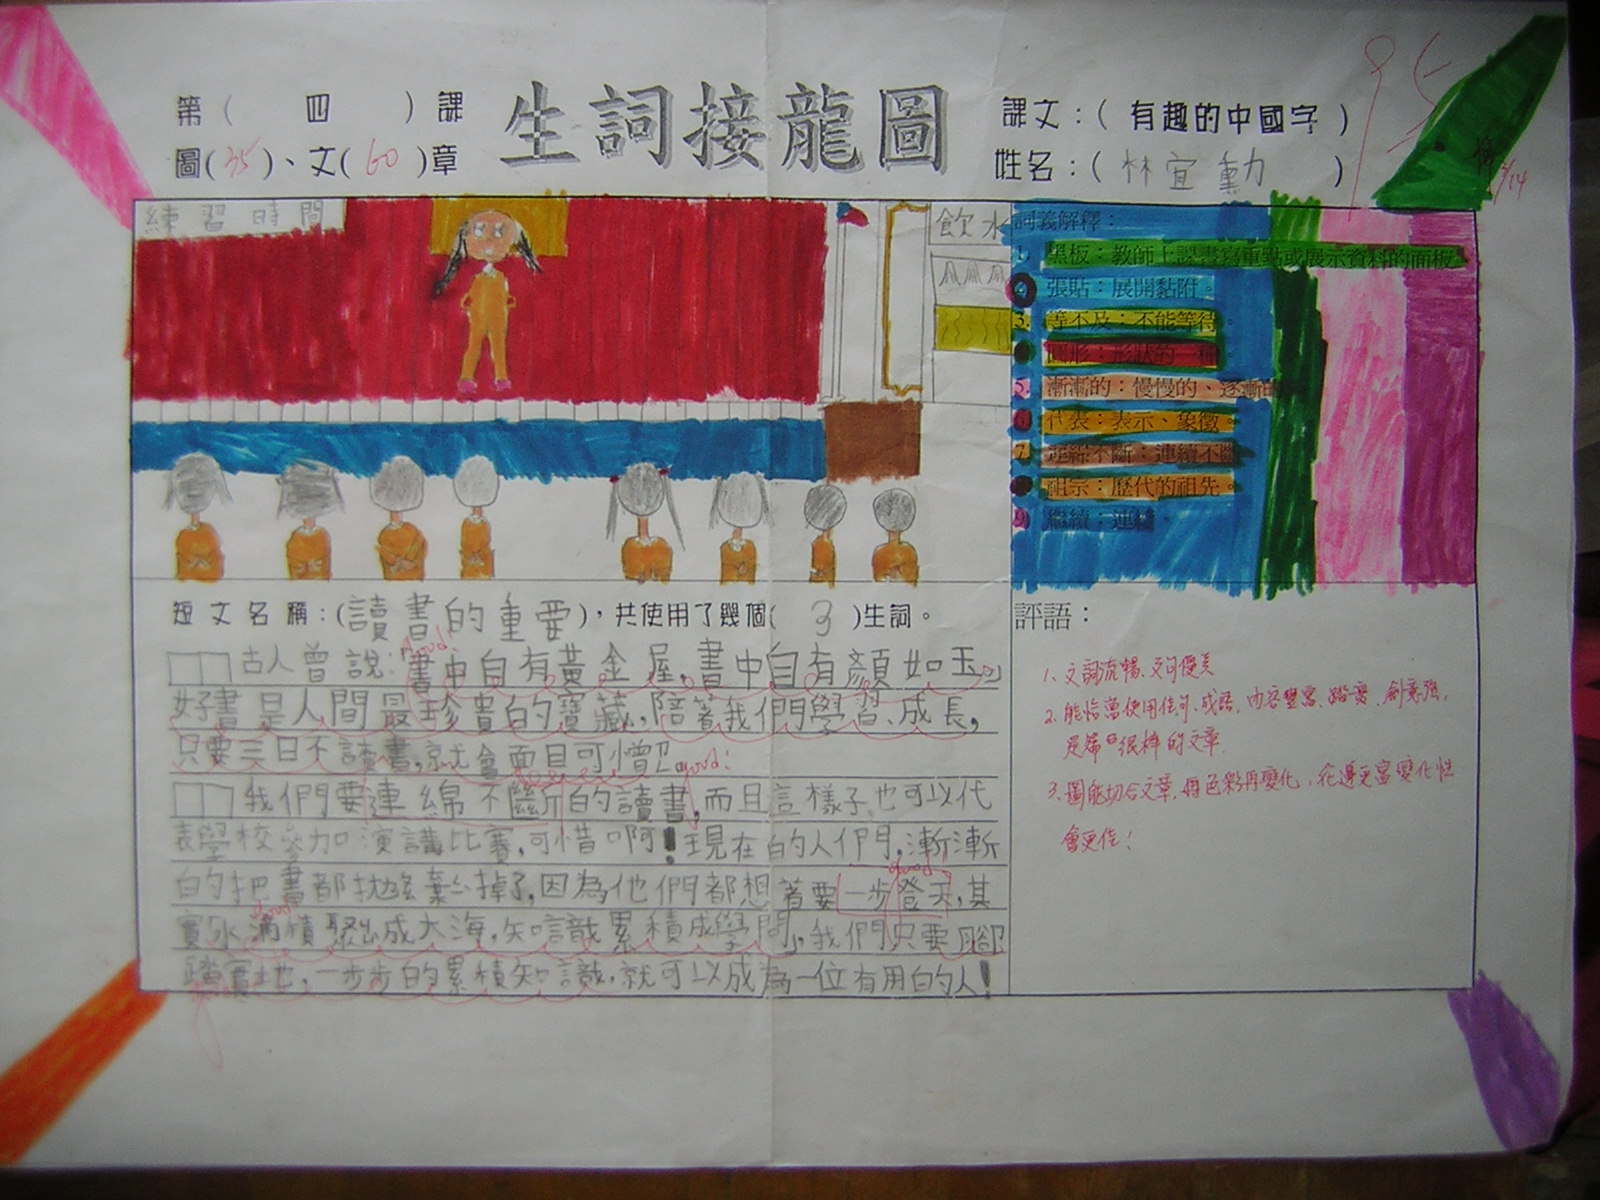 第( 四 )課 生詞接龍圖 課文:( 有趣的中國字 )
圖(35)、文(60)章 姓名:( 林宜勳 )
95
練習時間
飲水
詞義解釋:
1. 黑板:教師上課書寫重點或展示資料的面板。
2. 張貼:展開黏附。
3. 等不及:不能等待。
圓形:形狀的一種。
5. 漸漸的:慢慢的、逐漸的
代表:表示、象徵。
7. 連綿不斷:連續不斷
祖宗:歷代的祖先。
9. 繼續:連續。
短文名稱:(讀書的重要),共使用了幾個( 3 )生詞。
古人曾說:書中自有黃金屋,書中自有顏如玉。
好書是人間最珍貴的寶藏,陪著我們學習、成長,
只要三日不讀書,就會面目可憎
我們要連綿不斷的讀書,而且這樣子也可以代
表學校參加演講比賽,可惜啊!現在的人們,漸漸
的把書都拋棄掉了,因為他們都想著要一步登天,其
實水滴積聚成大海,知識累積成學問,我們只要腳
踏實地,一步步的累積知識,就可以成為一位有用的人!
good!
good!
good!
good!
評語:
1. 文詞流暢、文句優美
2. 能恰當使用佳句、成語,內容豐富、踏實、創意強,
是篇很棒的文章.
3. 圖能切合文章,再色彩再變化,花邊更富變化性
會更佳!